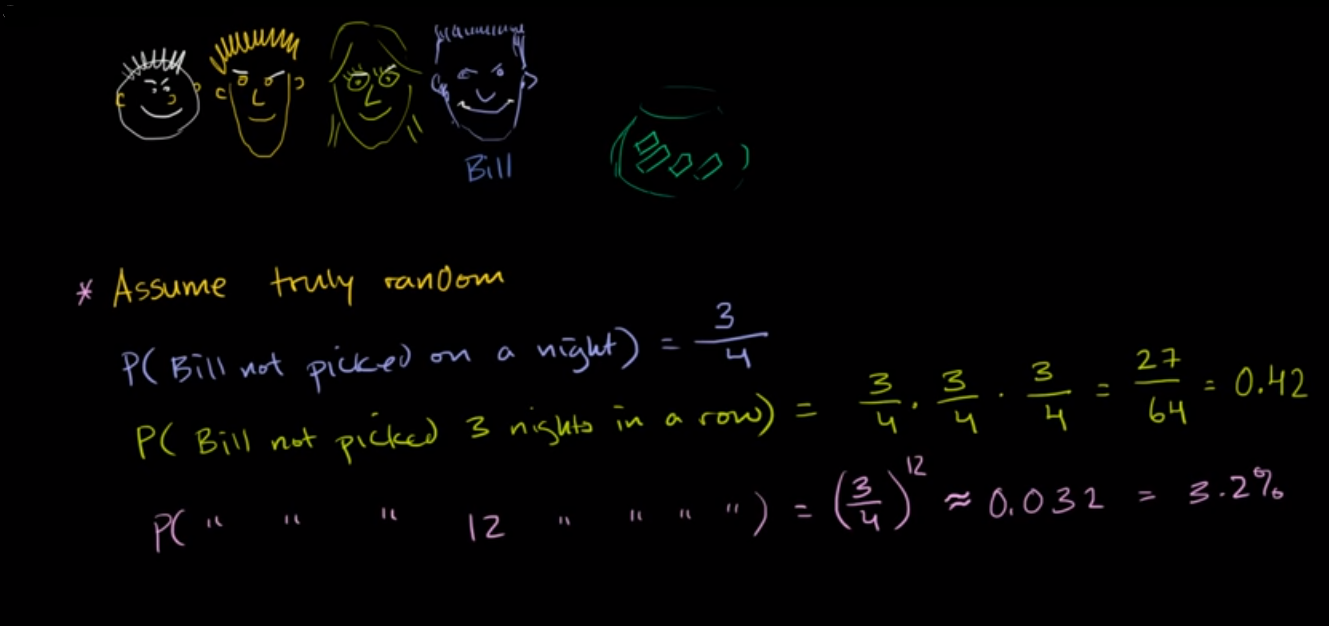 Bill
* Assume truly random
P( Bill not picked on a night) = 3/4
P( Bill not picked 3 nights in a row) = 3/4 · 3/4 · 3/4 = 27/64 = 0.42
P( " " " 12 " " " " ) = (3/4)^12 ≈ 0.032 = 3.2%